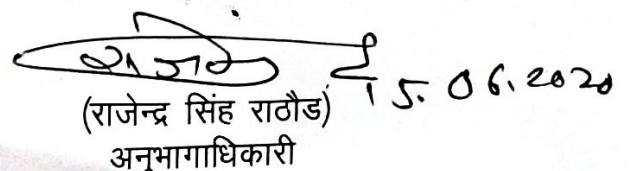 राजेन्द्र 15.06.2020
(राजेन्द्र सिंह राठौड)
अनुभागाधिकारी